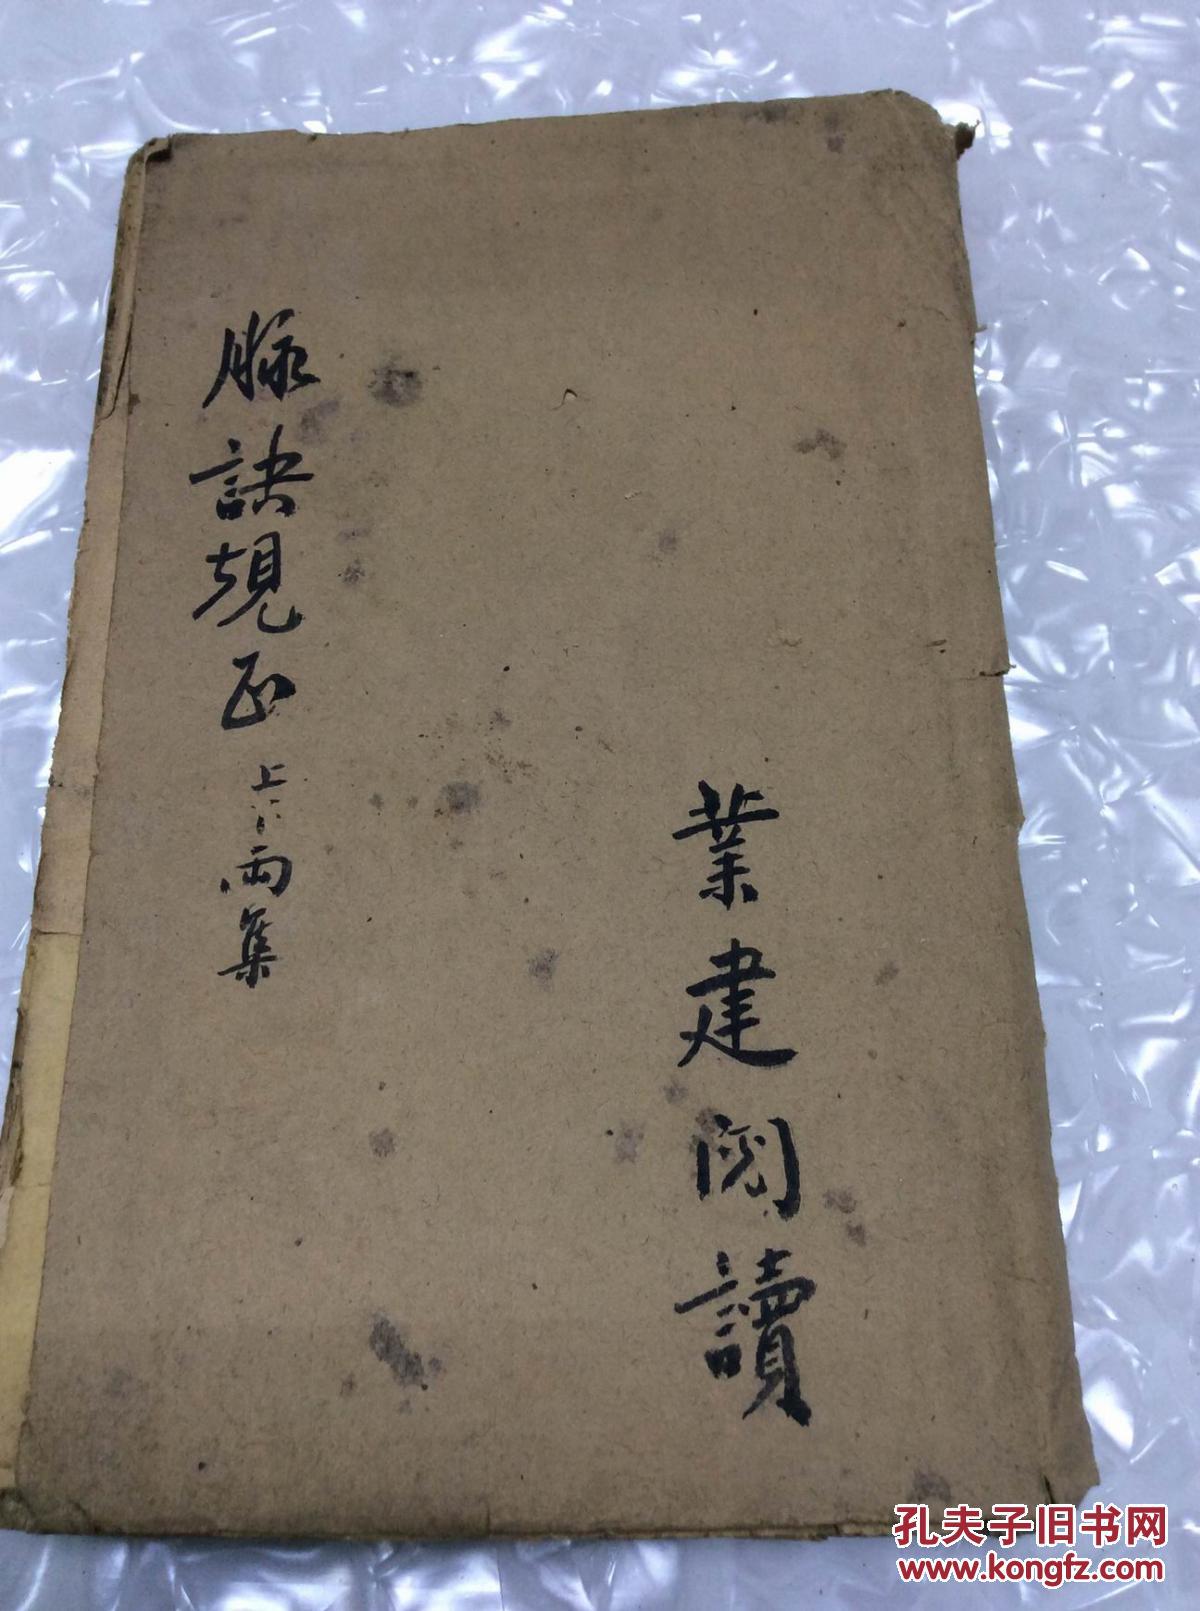 業建閱讀
脉訣規正 上下兩集
孔夫子旧书网
www.kongfz.com